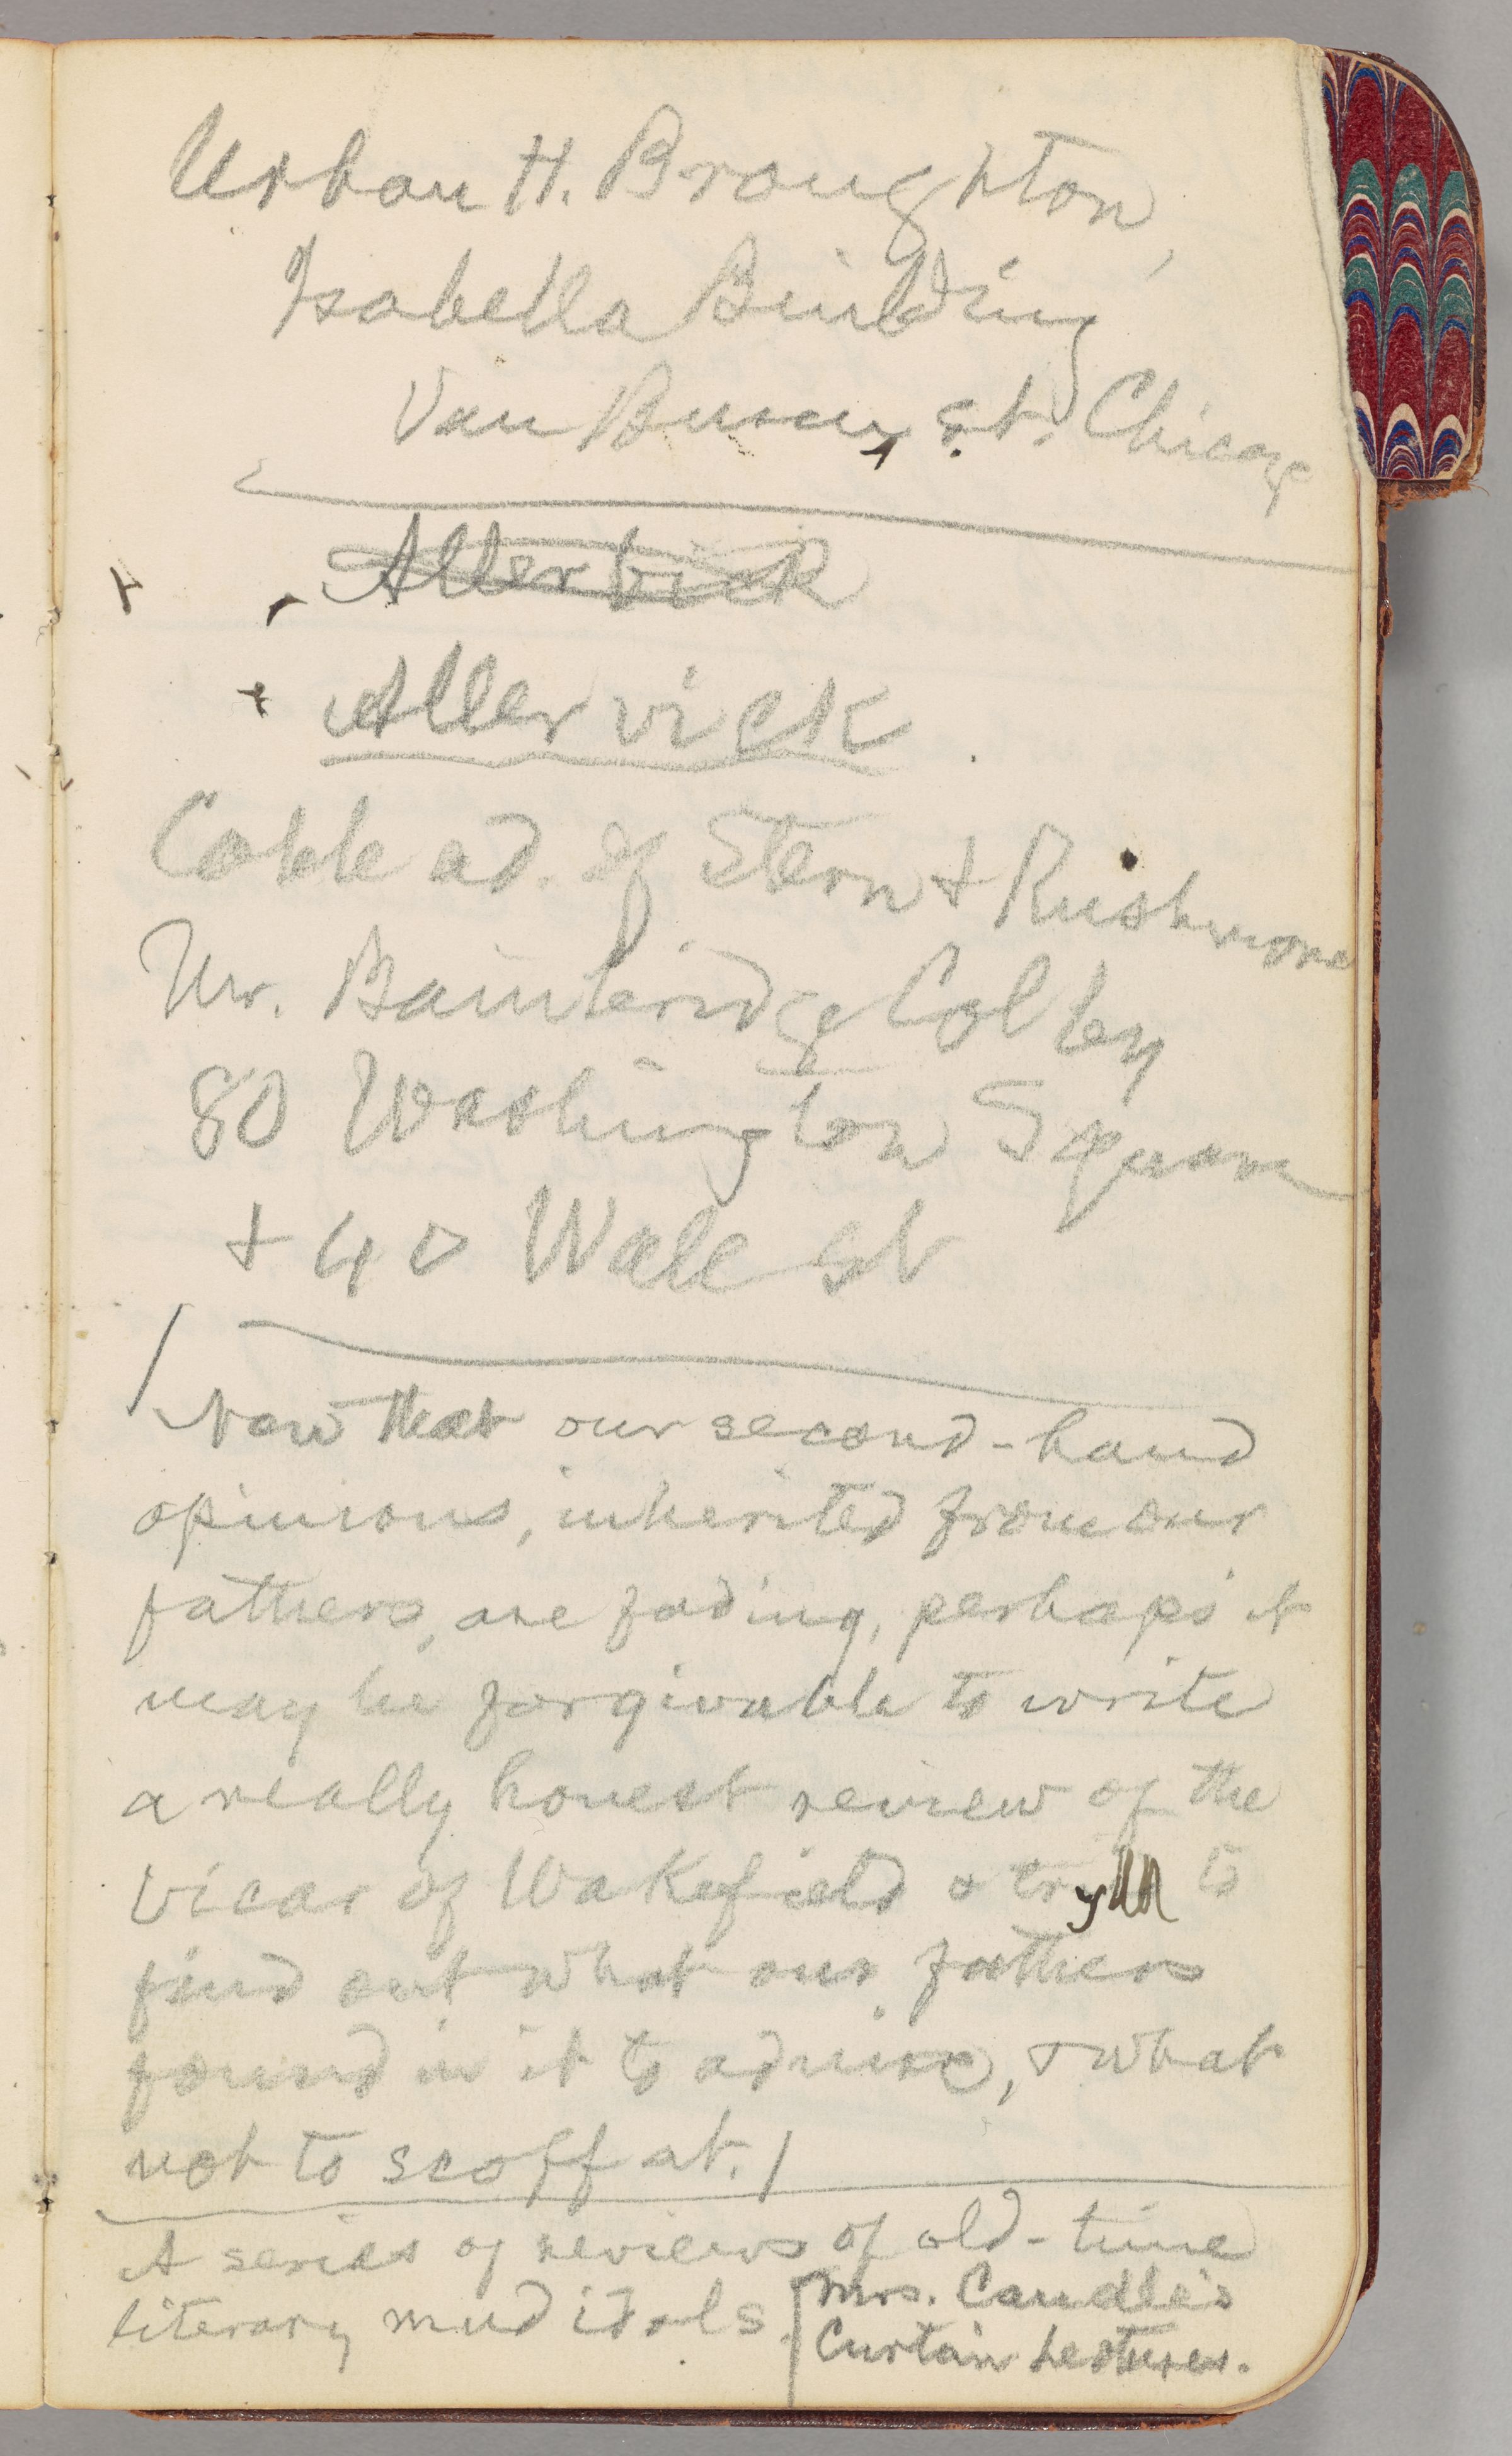 Urban H. Broughton,
Isabella Building
Van Buren st. Chicago
Allervick
Allervick
Cable ad. of Stern + Rushmore
Mr. Bainbridge Colby
80 Washington Square
+ 40 Wall st
Now that our second-hand
opinions, inherited from our
fathers, are fading, perhaps it
may be forgivable to write
a really honest review of the
Vicar of Wakefield & try to
find out what our fathers
found in it to admire, & what
not to scoff at. /
A series of reviews of old-time
literary mud idols.
Mrs. Caudle's
Curtain Lectures.